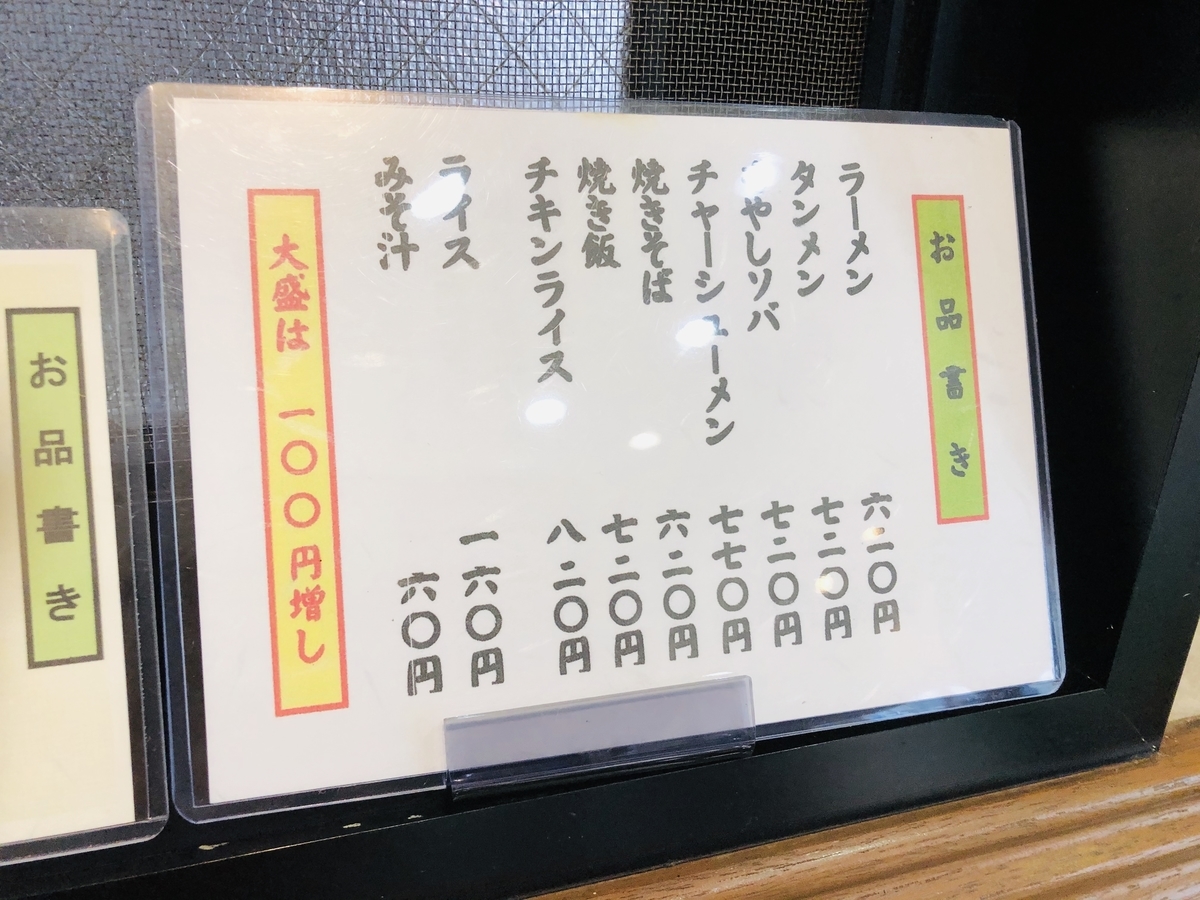 お品書き
ラーメン 六二〇円
タンメン 七二〇円
もやしソバ 七二〇円
チャーシューメン 七七〇円
焼きそば 六二〇円
焼き飯 七二〇円
チキンライス 八二〇円
ライス 一六〇円
みそ汁 六〇円
大盛は 一〇〇円増し
お品書き